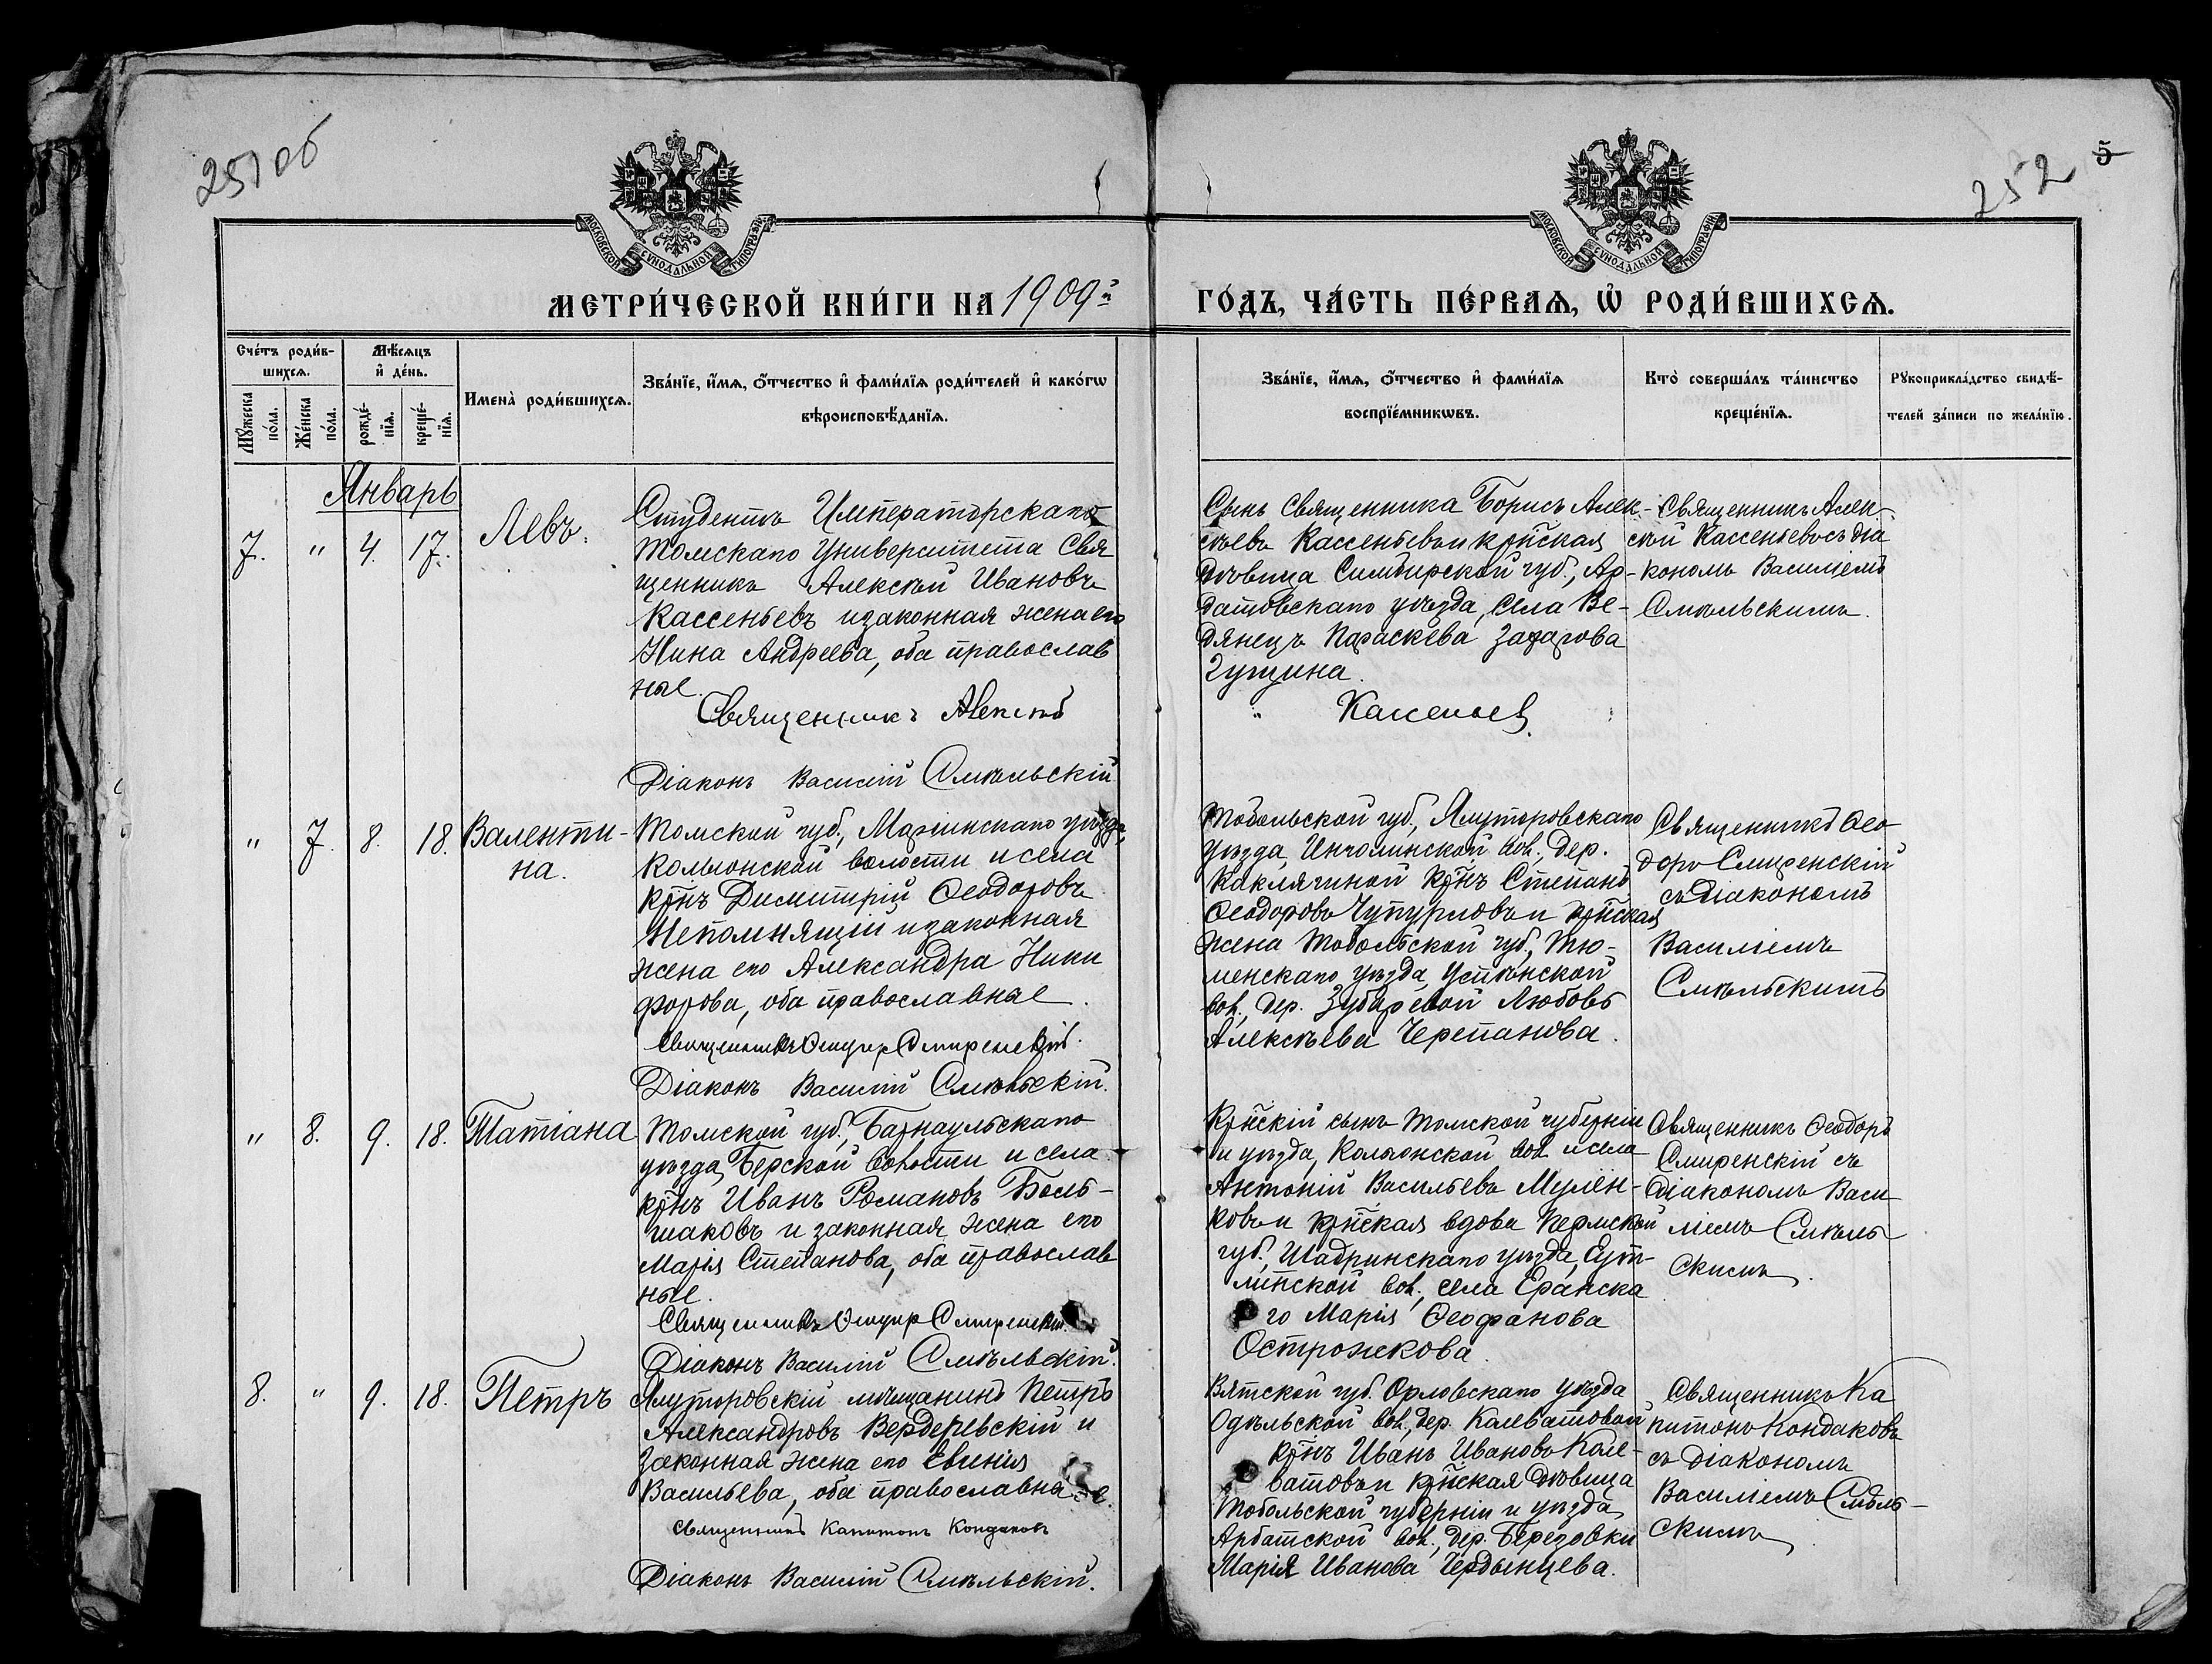 251 об
252
5
МОСКОВСКОЙ СѴНОДАЛЬНОЙ ТИПОГРАФІИ
МОСКОВСКОЙ СѴНОДАЛЬНОЙ ТИПОГРАФІИ
МЕТРИ́ЧЕСКОЙ КНИ́ГИ НА 1909й
ГО́ДЪ, ЧА́СТЬ ПЕ́РВАѦ, Ѡ҆ РОДИ́ВШИХСѦ.
Сче́тъ роди́в-
шихсѧ.
Мꙋ́жеска
по́ла.
Же́нска
по́ла.
Мѣ́сѧцъ
и҆ де́нь.
рожде́-
нїѧ.
креще́-
нїѧ.
Имена̀ роди́вшихсѧ.
Зва́нїе, и҆́мѧ, ѻ҆́тчество и҆ фами́лїѧ роди́телей и҆ како́гѡ
вѣроисповѣ́данїѧ.
Зва́нїе, и҆́мѧ, ѻ҆́тчество и҆ фами́лїѧ
воспрїе́мникѡвъ.
Кто̀ соверша́лъ та́инство
креще́нїѧ.
Рꙋкоприкла́дство свидѣ́-
телей за́писи по жела́нїю.
Январь
7. " 4. 17.
Левъ.
Студентъ Императорскаго
Томскаго Университета Свя
щенникъ Алексѣй Ивановъ
Кассеньевъ и законная жена его
Нина Андреева, оба православ
ные.
Священникъ Алексѣй
Діаконъ Василій Смѣльскій
Сынъ Священника Борисъ Алек-
сѣевъ Кассеньевъ и крнская
дѣвица Симбирской губ., Ар-
датовскаго уѣзда, села Ве-
дянецъ Параскева Захарова
Гущина.
" Кассеньев
Священникъ Алек-
сѣй Кассеньевъ съ діа
кономъ Василіемъ
Смѣльскимъ.
" 7. 8. 18.
Валенти-
на.
Томской губ., Маріинскаго уѣзда,
Колыонской волости и села
крнъ Димитрій Ѳеодоровъ
Непомнящій и законная
жена его Александра Ники
форова, оба православные.
Священникъ Ѳеодоръ Смиренскій.
Діаконъ Василій Смѣльскій.
Тобольской губ., Ялуторовскаго
уѣзда, вол., дер.
крнъ Степанъ
Ѳеодоровъ и крнская
жена Тобольской губ., Тю-
менскаго уѣзда,
вол., дер. Зубаревой Любовь
Алексѣева Черепанова.
Священникъ Ѳео
доръ Смиренскій
съ діакономъ
Василіемъ
Смѣльскимъ
" 8. 9. 18.
Татіана
Томской губ., Барнаульскаго
уѣзда, Берской волости и села
крнъ Иванъ Романовъ Боль-
шаковъ и законная жена его
Марія Степанова, оба православ
ные.
Священникъ Ѳеодоръ Смиренскій.
Діаконъ Василій Смѣльскій.
Крнскій сынъ Томской губерніи
и уѣзда, Колыонской вол. и села
Антоній Васильевъ Мулен-
ковъ и крнская вдова Пермской
губ., Шадринскаго уѣзда,
вол., села
го Марія Ѳеофанова
Острожекова.
Священникъ Ѳеодоръ
Смиренскій съ
діакономъ Васи
ліемъ Смѣль
скимъ.
8. " 9. 18.
Петръ
Ялуторовскій мѣщанинъ Петръ
Александровъ Вердеревскій и
законная жена его Евгенія
Васильева, оба православные.
Священникъ Капитонъ Кондаковъ
Діаконъ Василій Смѣльскій.
Вятской губ. Орловскаго уѣзда
вол., дер. Калеватовой
крнъ Иванъ Ивановъ Кале-
ватовъ и крнская дѣвица
Тобольской губерніи и уѣзда,
Арбатской вол., дер. Березовки
Марія Иванова Чердынцева.
Священникъ Ка
питонъ Кондаковъ
съ діакономъ
Василіемъ Смѣль-
скимъ